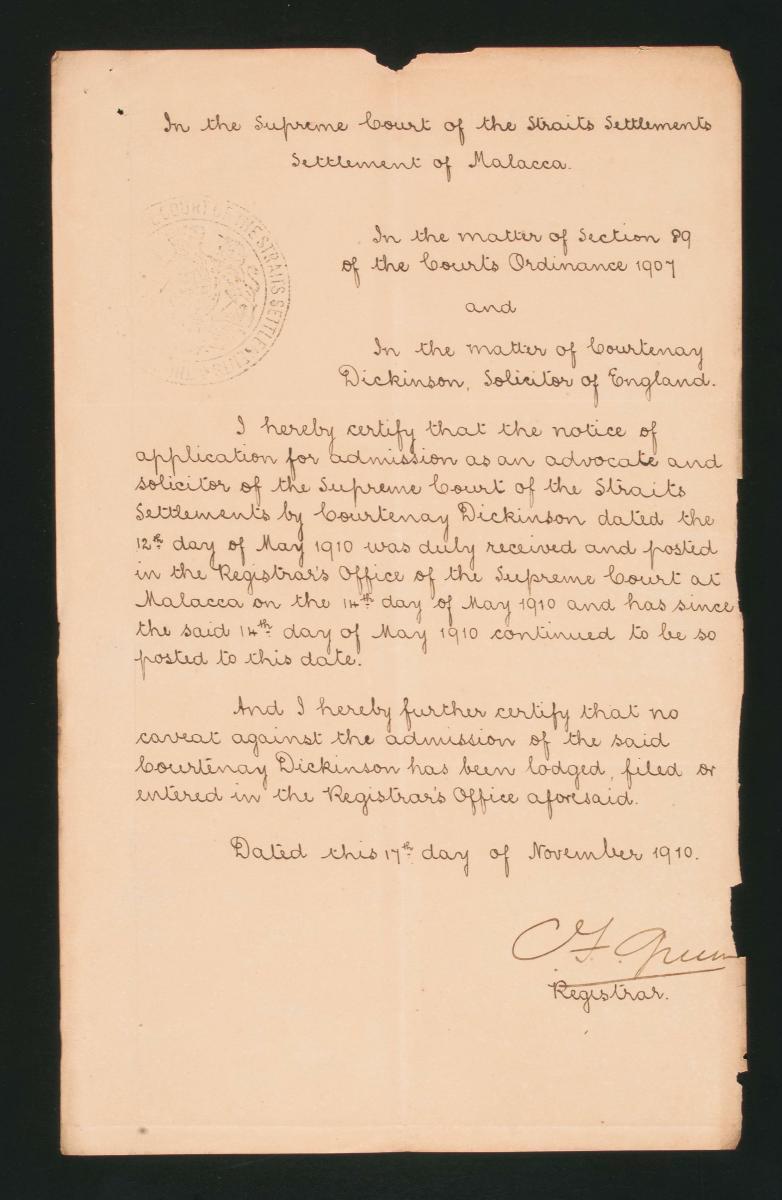 In the Supreme Court of the Straits Settlements
Settlement of Malacca.
COURT OF THE STRAITS SETTLEMENTS
In the matter of Section 89
of the Courts Ordinance 1907
and
In the matter of Courtenay
Dickinson, Solicitor of England.
I hereby certify that the notice of
application for admission as an advocate and
solicitor of the Supreme Court of the Straits
Settlements by Courtenay Dickinson dated the
12th day of May 1910 was duly received and posted
in the Registrar's Office of the Supreme Court at
Malacca on the 14th day of May 1910 and has since
the said 14th day of May 1910 continued to be so
posted to this date.
And I hereby further certify that no
caveat against the admission of the said
Courtenay Dickinson has been lodged, filed or
entered in the Registrar's Office aforesaid.
Dated this 17th day of November 1910.
Registrar.